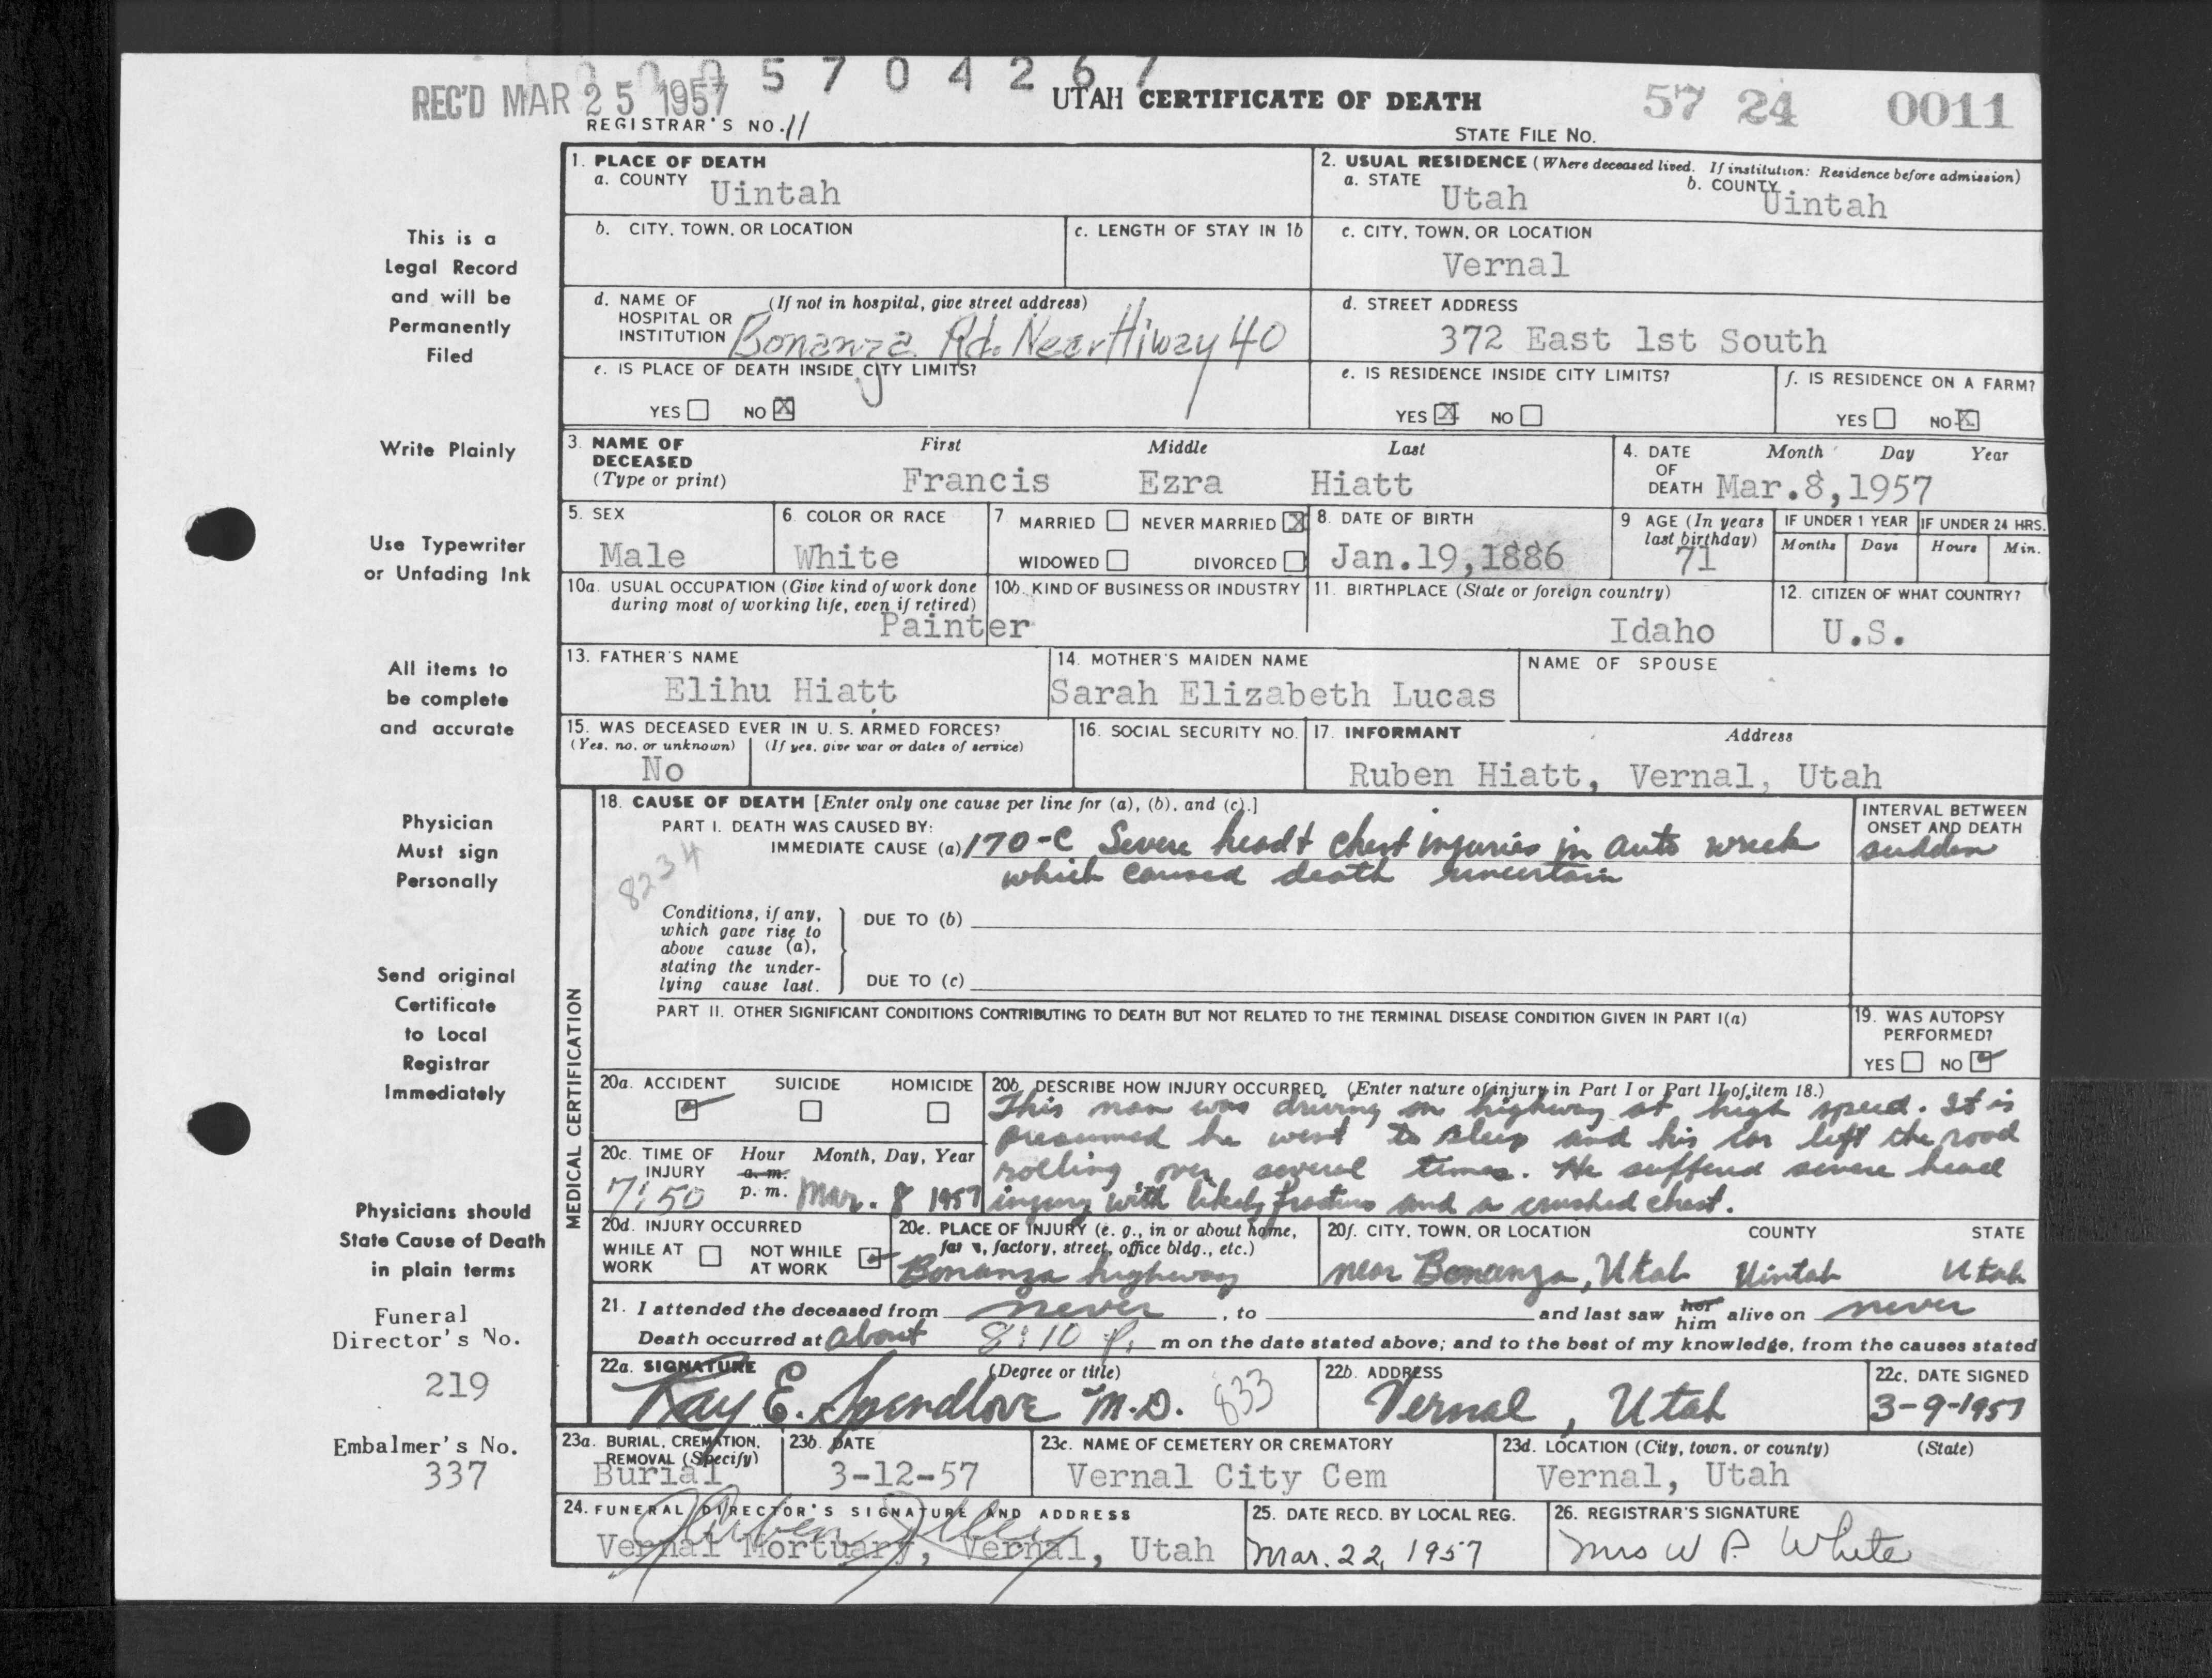 REC'D MAR 25 1957
5 7 0 4 2 6 7
UTAH CERTIFICATE OF DEATH
57 24 0011
REGISTRAR'S NO. 11
STATE FILE NO.
1. PLACE OF DEATH
a. COUNTY Uintah
2. USUAL RESIDENCE (Where deceased lived. If institution: Residence before admission)
a. STATE Utah b. COUNTY Uintah
b. CITY, TOWN, OR LOCATION
c. LENGTH OF STAY IN 1b
c. CITY, TOWN, OR LOCATION
Vernal
d. NAME OF HOSPITAL OR INSTITUTION (If not in hospital, give street address)
Bonanza Rd. Near Hiway 40
d. STREET ADDRESS
372 East 1st South
e. IS PLACE OF DEATH INSIDE CITY LIMITS?
YES NO X
e. IS RESIDENCE INSIDE CITY LIMITS?
YES X NO
f. IS RESIDENCE ON A FARM?
YES NO X
3. NAME OF DECEASED (Type or print)
First Middle Last
Francis Ezra Hiatt
4. DATE OF DEATH Month Day Year
Mar.8,1957
5. SEX
Male
6. COLOR OR RACE
White
7 MARRIED NEVER MARRIED X
WIDOWED DIVORCED
8. DATE OF BIRTH
Jan.19,1886
9 AGE (In years last birthday)
71
IF UNDER 1 YEAR IF UNDER 24 HRS.
Months Days Hours Min.
10a. USUAL OCCUPATION (Give kind of work done during most of working life, even if retired)
Painter
10b. KIND OF BUSINESS OR INDUSTRY
11. BIRTHPLACE (State or foreign country)
Idaho
12. CITIZEN OF WHAT COUNTRY?
U.S.
13. FATHER'S NAME
Elihu Hiatt
14. MOTHER'S MAIDEN NAME
Sarah Elizabeth Lucas
NAME OF SPOUSE
15. WAS DECEASED EVER IN U. S. ARMED FORCES?
(Yes, no, or unknown) (If yes, give war or dates of service)
No
16. SOCIAL SECURITY NO.
17. INFORMANT Address
Ruben Hiatt, Vernal, Utah
MEDICAL CERTIFICATION
18. CAUSE OF DEATH [Enter only one cause per line for (a), (b), and (c).]
PART I. DEATH WAS CAUSED BY:
IMMEDIATE CAUSE (a) 170-C Severe head + chest injuries in auto wreck
which caused death uncertain
8234
INTERVAL BETWEEN ONSET AND DEATH
sudden
Conditions, if any, which gave rise to above cause (a), stating the underlying cause last.
DUE TO (b)
DUE TO (c)
PART II. OTHER SIGNIFICANT CONDITIONS CONTRIBUTING TO DEATH BUT NOT RELATED TO THE TERMINAL DISEASE CONDITION GIVEN IN PART I(a)
19. WAS AUTOPSY PERFORMED?
YES NO
20a. ACCIDENT SUICIDE HOMICIDE
20b. DESCRIBE HOW INJURY OCCURRED. (Enter nature of injury in Part I or Part II of item 18.)
This man was driving on highway at high speed. It is
presumed he went to sleep and his car left the road
rolling over several times. He suffered severe head
injury with likely fracture and a crushed chest.
20c. TIME OF INJURY Hour Month, Day, Year
a. m.
7:50 p. m. Mar. 8 1957
20d. INJURY OCCURRED
WHILE AT WORK NOT WHILE AT WORK
20e. PLACE OF INJURY (e. g., in or about home, farm, factory, street, office bldg., etc.)
Bonanza highway
20f. CITY, TOWN, OR LOCATION COUNTY STATE
near Bonanza, Utah Uintah Utah
21. I attended the deceased from never, to and last saw her him alive on never
Death occurred at about 8:10 P. m on the date stated above; and to the best of my knowledge, from the causes stated
22a. SIGNATURE (Degree or title)
Ray E. Spendlove M.D. 833
22b. ADDRESS
Vernal, Utah
22c. DATE SIGNED
3-9-1957
23a. BURIAL, CREMATION, REMOVAL (Specify)
Burial
23b. DATE
3-12-57
23c. NAME OF CEMETERY OR CREMATORY
Vernal City Cem
23d. LOCATION (City, town, or county) (State)
Vernal, Utah
24. FUNERAL DIRECTOR'S SIGNATURE AND ADDRESS
Vernal Mortuary, Vernal, Utah
25. DATE RECD. BY LOCAL REG.
Mar. 22, 1957
26. REGISTRAR'S SIGNATURE
Mrs W P White
This is a
Legal Record
and will be
Permanently
Filed
Write Plainly
Use Typewriter
or Unfading Ink
All items to
be complete
and accurate
Physician
Must sign
Personally
Send original
Certificate
to Local
Registrar
Immediately
Physicians should
State Cause of Death
in plain terms
Funeral
Director's No.
219
Embalmer's No.
337